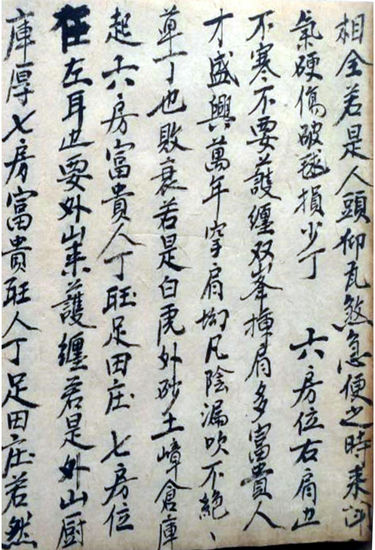 相全若是人頭仰瓦煞急便之時来凶
氣硬傷破毬損少丁　六房位右肩也
不寒不要護纏双峯揷肩多富貴人
才盛興萬年穿肩拗凡陰漏吹不絶、
草丁也敗衰若是白虎外砂土嶂倉庫
起六房富貴人丁旺足田庄　七房位
在左耳也要外山来護纏若是外山厨
庫厚七房富貴旺人丁足田庄若然